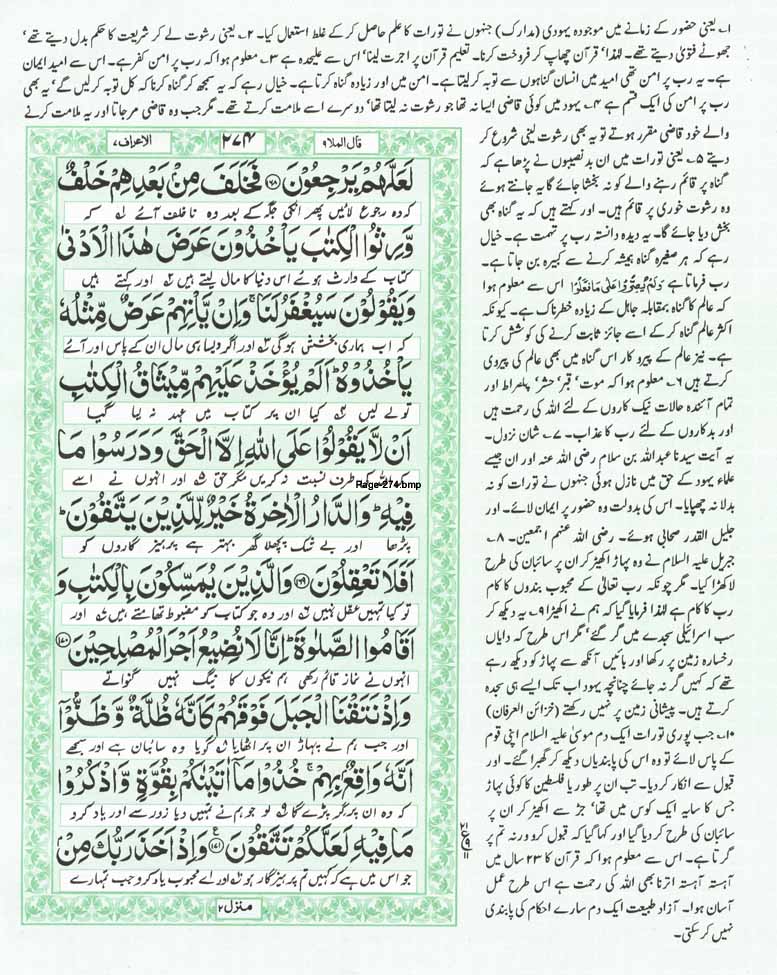 ۱؎ یعنی حضور کے زمانے میں موجودہ یہودی (مدارک) جنہوں نے تورات کا علم حاصل کر کے غلط استعمال کیا۔ ۲؎ یعنی رشوت لے کر شریعت کا حکم بدل دیتے تھے‘
جھوٹے فتویٰ دیتے تھے۔ لہٰذا‘ قرآن چھاپ کر فروخت کرنا۔ تعلیم قرآن پر اجرت لینا‘ اس سے علیحدہ ہے ۳؎ معلوم ہوا کہ رب پر امن کفر ہے۔ اس سے امید ایمان
ہے۔ یہ رب پر امن تھی امید میں انسان گناہوں سے توبہ کر لیتا ہے۔ امن میں اور زیادہ گناہ کرتا ہے۔ خیال رہے کہ یہ سمجھ کر گناہ کرنا کہ کل توبہ کر لیں گے‘ یہ بھی
رب پر امن کی ایک قسم ہے ۴؎ یہود میں کوئی قاضی ایسا نہ تھا جو رشوت نہ لیتا تھا‘ دوسرے اسے ملامت کرتے تھے۔ مگر جب وہ قاضی مر جاتا اور یہ ملامت کرنے
والے خود قاضی مقرر ہوتے تو یہ بھی رشوت لینی شروع کر
دیتے ۵؎ یعنی تورات میں ان بد نصیبوں نے پڑھا ہے کہ
گناہ پر قائم رہنے والے کو نہ بخشا جائے گا یہ جانتے ہوئے
وہ رشوت خوری پر قائم ہیں۔ اور کہتے ہیں کہ یہ گناہ بھی
بخش دیا جائے گا۔ یہ دیدہ دانستہ رب پر تہمت ہے۔ خیال
رہے کہ ہر صغیرہ گناہ ہمیشہ کرنے سے کبیرہ بن جاتا ہے۔
رب فرماتا ہے وَلَمْ یُصِرُّوْا عَلٰی مَا فَعَلُوْا اس سے معلوم ہوا
کہ عالم کا گناہ بمقابلہ جاہل کے زیادہ خطرناک ہے۔ کیونکہ
اکثر عالم گناہ کر کے اسے جائز ثابت کرنے کی کوشش کرتا
ہے۔ نیز عالم کے پیرو کار اس گناہ میں بھی عالم کی پیروی
کرتے ہیں ۶؎ معلوم ہوا کہ موت‘ قبر‘ حشر‘ پلصراط اور
تمام آئندہ حالات نیک کاروں کے لئے اللہ کی رحمت ہیں
اور بدکاروں کے لئے رب کا عذاب۔ ۷؎ شان نزول۔
یہ آیت سیدنا عبداللہ بن سلام رضی اللہ عنہ اور ان جیسے
علماء یہود کے حق میں نازل ہوئی جنہوں نے تورات کو نہ
بدلا نہ چھپایا۔ اس کی بدولت وہ حضور پر ایمان لائے۔ اور
جلیل القدر صحابی ہوئے۔ رضی اللہ عنہم اجمعین۔ ۸؎
جبریل علیہ السلام نے وہ پہاڑ اکھیڑ کر ان پر سائبان کی طرح
لاکھڑا کیا۔ مگر چونکہ رب تعالیٰ کے محبوب بندوں کا کام
رب کا کام ہے لہٰذا فرمایا گیا کہ ہم نے اکھیڑا ۹؎ یہ دیکھ کر
سب اسرائیلی سجدے میں گر گئے‘ مگر اس طرح کہ دایاں
رخسارہ زمین پر رکھا اور بائیں آنکھ سے پہاڑ کو دیکھ رہے
تھے کہ کہیں گر نہ جائے چنانچہ یہود اب تک ایسے ہی سجدہ
کرتے ہیں۔ پیشانی زمین پر نہیں رکھتے (خزائن العرفان)
۱۰؎ جب پوری تورات ایک دم موسیٰ علیہ السلام اپنی قوم
کے پاس لائے تو وہ اس کی پابندیاں دیکھ کر گھبرا گئے۔ اور
قبول سے انکار کر دیا۔ تب ان پر طور یا فلسطین کا کوئی پہاڑ
جس کا سایہ ایک کوس میں تھا‘ جڑ سے اکھیڑ کر ان پر
سائبان کی طرح کر دیا گیا اور کہا گیا کہ قبول کرو ورنہ تم پر
گرتا ہے۔ اس سے معلوم ہوا کہ قرآن کا ۲۳ سال میں
آہستہ آہستہ اترنا بھی اللہ کی رحمت ہے اس طرح عمل
آسان ہوا۔ آزاد طبیعت ایک دم سارے احکام کی پابندی
نہیں کر سکتی۔
قال الملا۹ ۲۷۴ الاعراف۷
لَعَلَّهُمْ يَرْجِعُوْنَ ﴿۱۶۸﴾ فَخَلَفَ مِنْۢ بَعْدِهِمْ خَلْفٌ
کہ وہ رجوع لائیں پھر انکی جگہ کے بعد وہ ناخلف آئے ۱؎ کہ
وَّرِثُوا الْكِتٰبَ يَاْخُذُوْنَ عَرَضَ هٰذَا الْاَدْنٰى
کتاب کے وارث ہوئے اس دنیا کا مال لیتے ہیں ۲؎ اور کہتے ہیں
وَيَقُوْلُوْنَ سَيُغْفَرُ لَنَا ۚ وَاِنْ يَّاْتِهِمْ عَرَضٌ مِّثْلُهٗ
کہ اب ہماری بخشش ہوگی ۳؎ اور اگر ویسا ہی مال ان کے پاس اور آئے
يَاْخُذُوْهُ ؕ اَلَمْ يُؤْخَذْ عَلَيْهِمْ مِّيْثَاقُ الْكِتٰبِ
تو لے لیں ۴؎ کیا ان پر کتاب میں عہد نہ لیا گیا
اَنْ لَّا يَقُوْلُوْا عَلَى اللّٰهِ اِلَّا الْحَقَّ وَدَرَسُوْا مَا
کہ اللہ کی طرف نسبت نہ کریں مگر حق ۵؎ اور انہوں نے اسے
Rage-274.bmp
فِيْهِ ؕ وَالدَّارُ الْاٰخِرَةُ خَيْرٌ لِّلَّذِيْنَ يَتَّقُوْنَ ؕ
پڑھا اور بے شک پچھلا گھر بہتر ہے پرہیزگاروں کو
اَفَلَا تَعْقِلُوْنَ ﴿۱۶۹﴾ وَالَّذِيْنَ يُمَسِّكُوْنَ بِالْكِتٰبِ وَ
تو کیا تمہیں عقل نہیں ۶؎ اور وہ جو کتاب کو مضبوط تھامتے ہیں ۷؎ اور
اَقَامُوا الصَّلٰوةَ ؕ اِنَّا لَا نُضِيْعُ اَجْرَ الْمُصْلِحِيْنَ ﴿۱۷۰﴾
انہوں نے نماز قائم رکھی ہم نیکوں کا نیگ نہیں گنواتے
وَاِذْ نَتَقْنَا الْجَبَلَ فَوْقَهُمْ كَاَنَّهٗ ظُلَّةٌ وَّظَنُّوْۤا
اور جب ہم نے پہاڑ ان پر اٹھایا ۸؎ گویا وہ سائبان ہے اور سمجھے
اَنَّهٗ وَاقِعٌۢ بِهِمْ ۚ خُذُوْا مَاۤ اٰتَيْنٰكُمْ بِقُوَّةٍ وَّاذْكُرُوْا
کہ وہ ان پر گر پڑے گا ۹؎ لو جو ہم نے تمہیں دیا زور سے اور یاد کرو
مَا فِيْهِ لَعَلَّكُمْ تَتَّقُوْنَ ﴿۱۷۱﴾ وَاِذْ اَخَذَ رَبُّكَ مِنْۢ
جو اس میں ہے کہ کہیں تم پرہیزگار ہو ۱۰؎ اور اے محبوب یاد کرو جب تمہارے
منزل۲